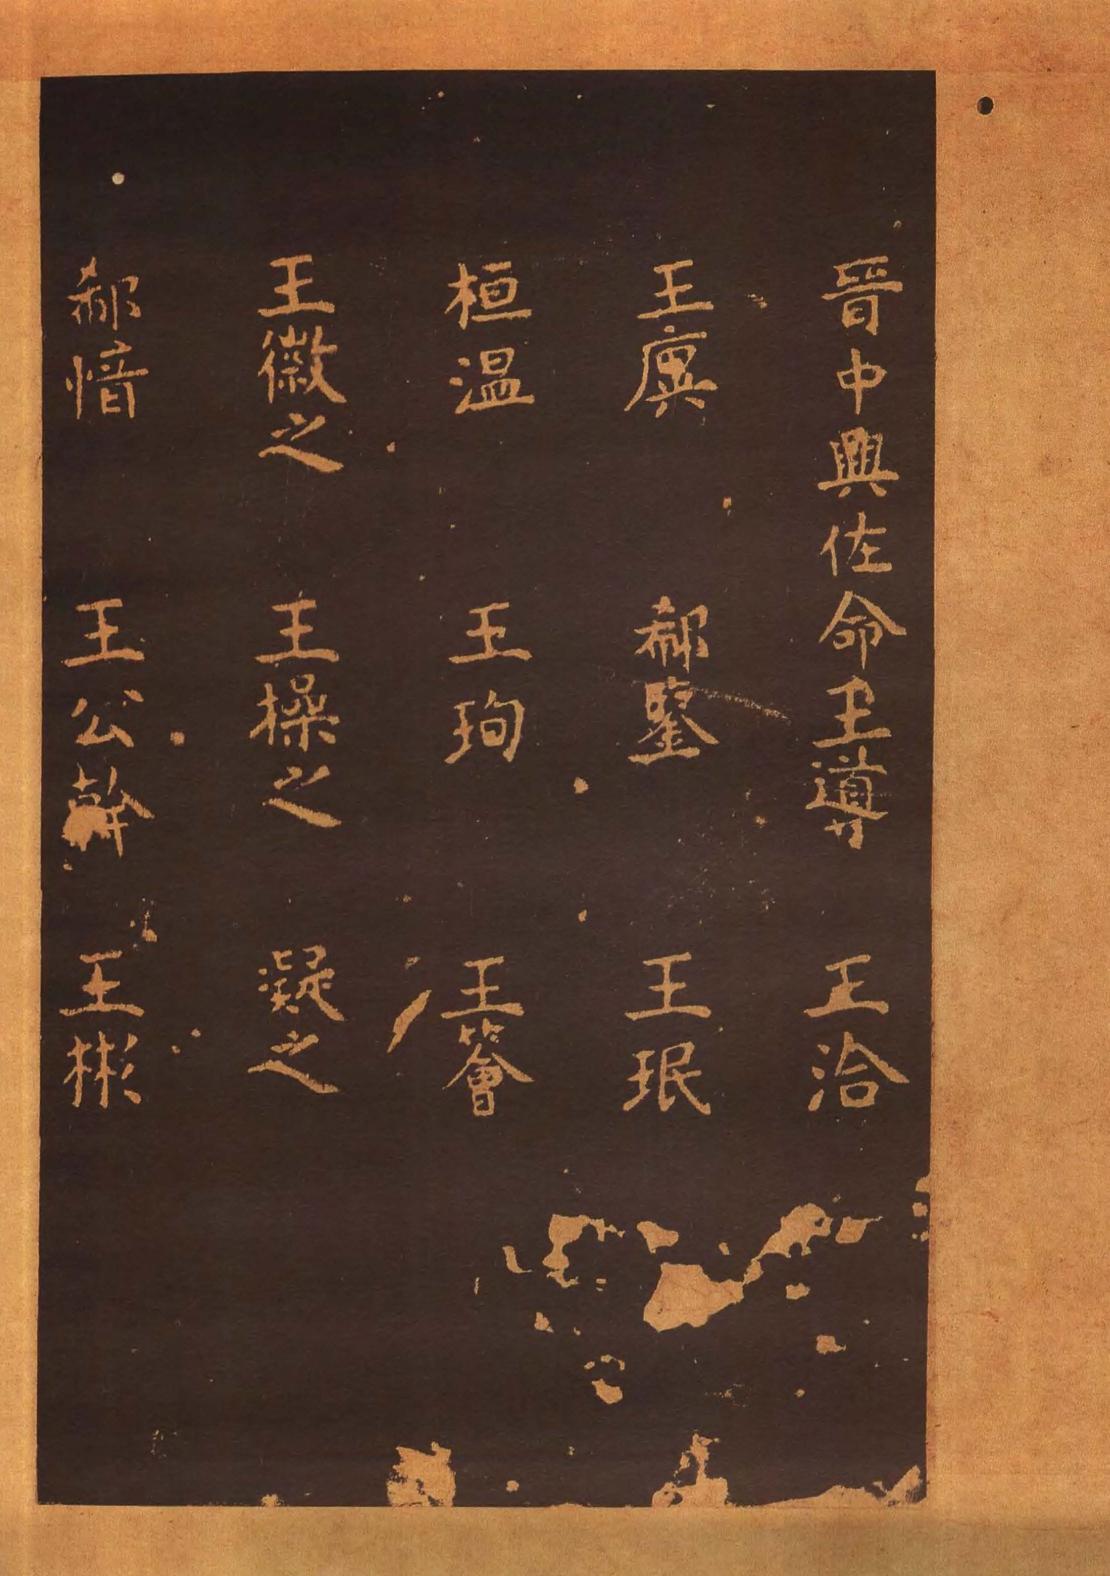 晉中興佐命王導　王洽
王廙　郗鑒　王珉
桓温　王珣　王薈
王徽之　王操之　凝之
郗愔　王公幹　王彬